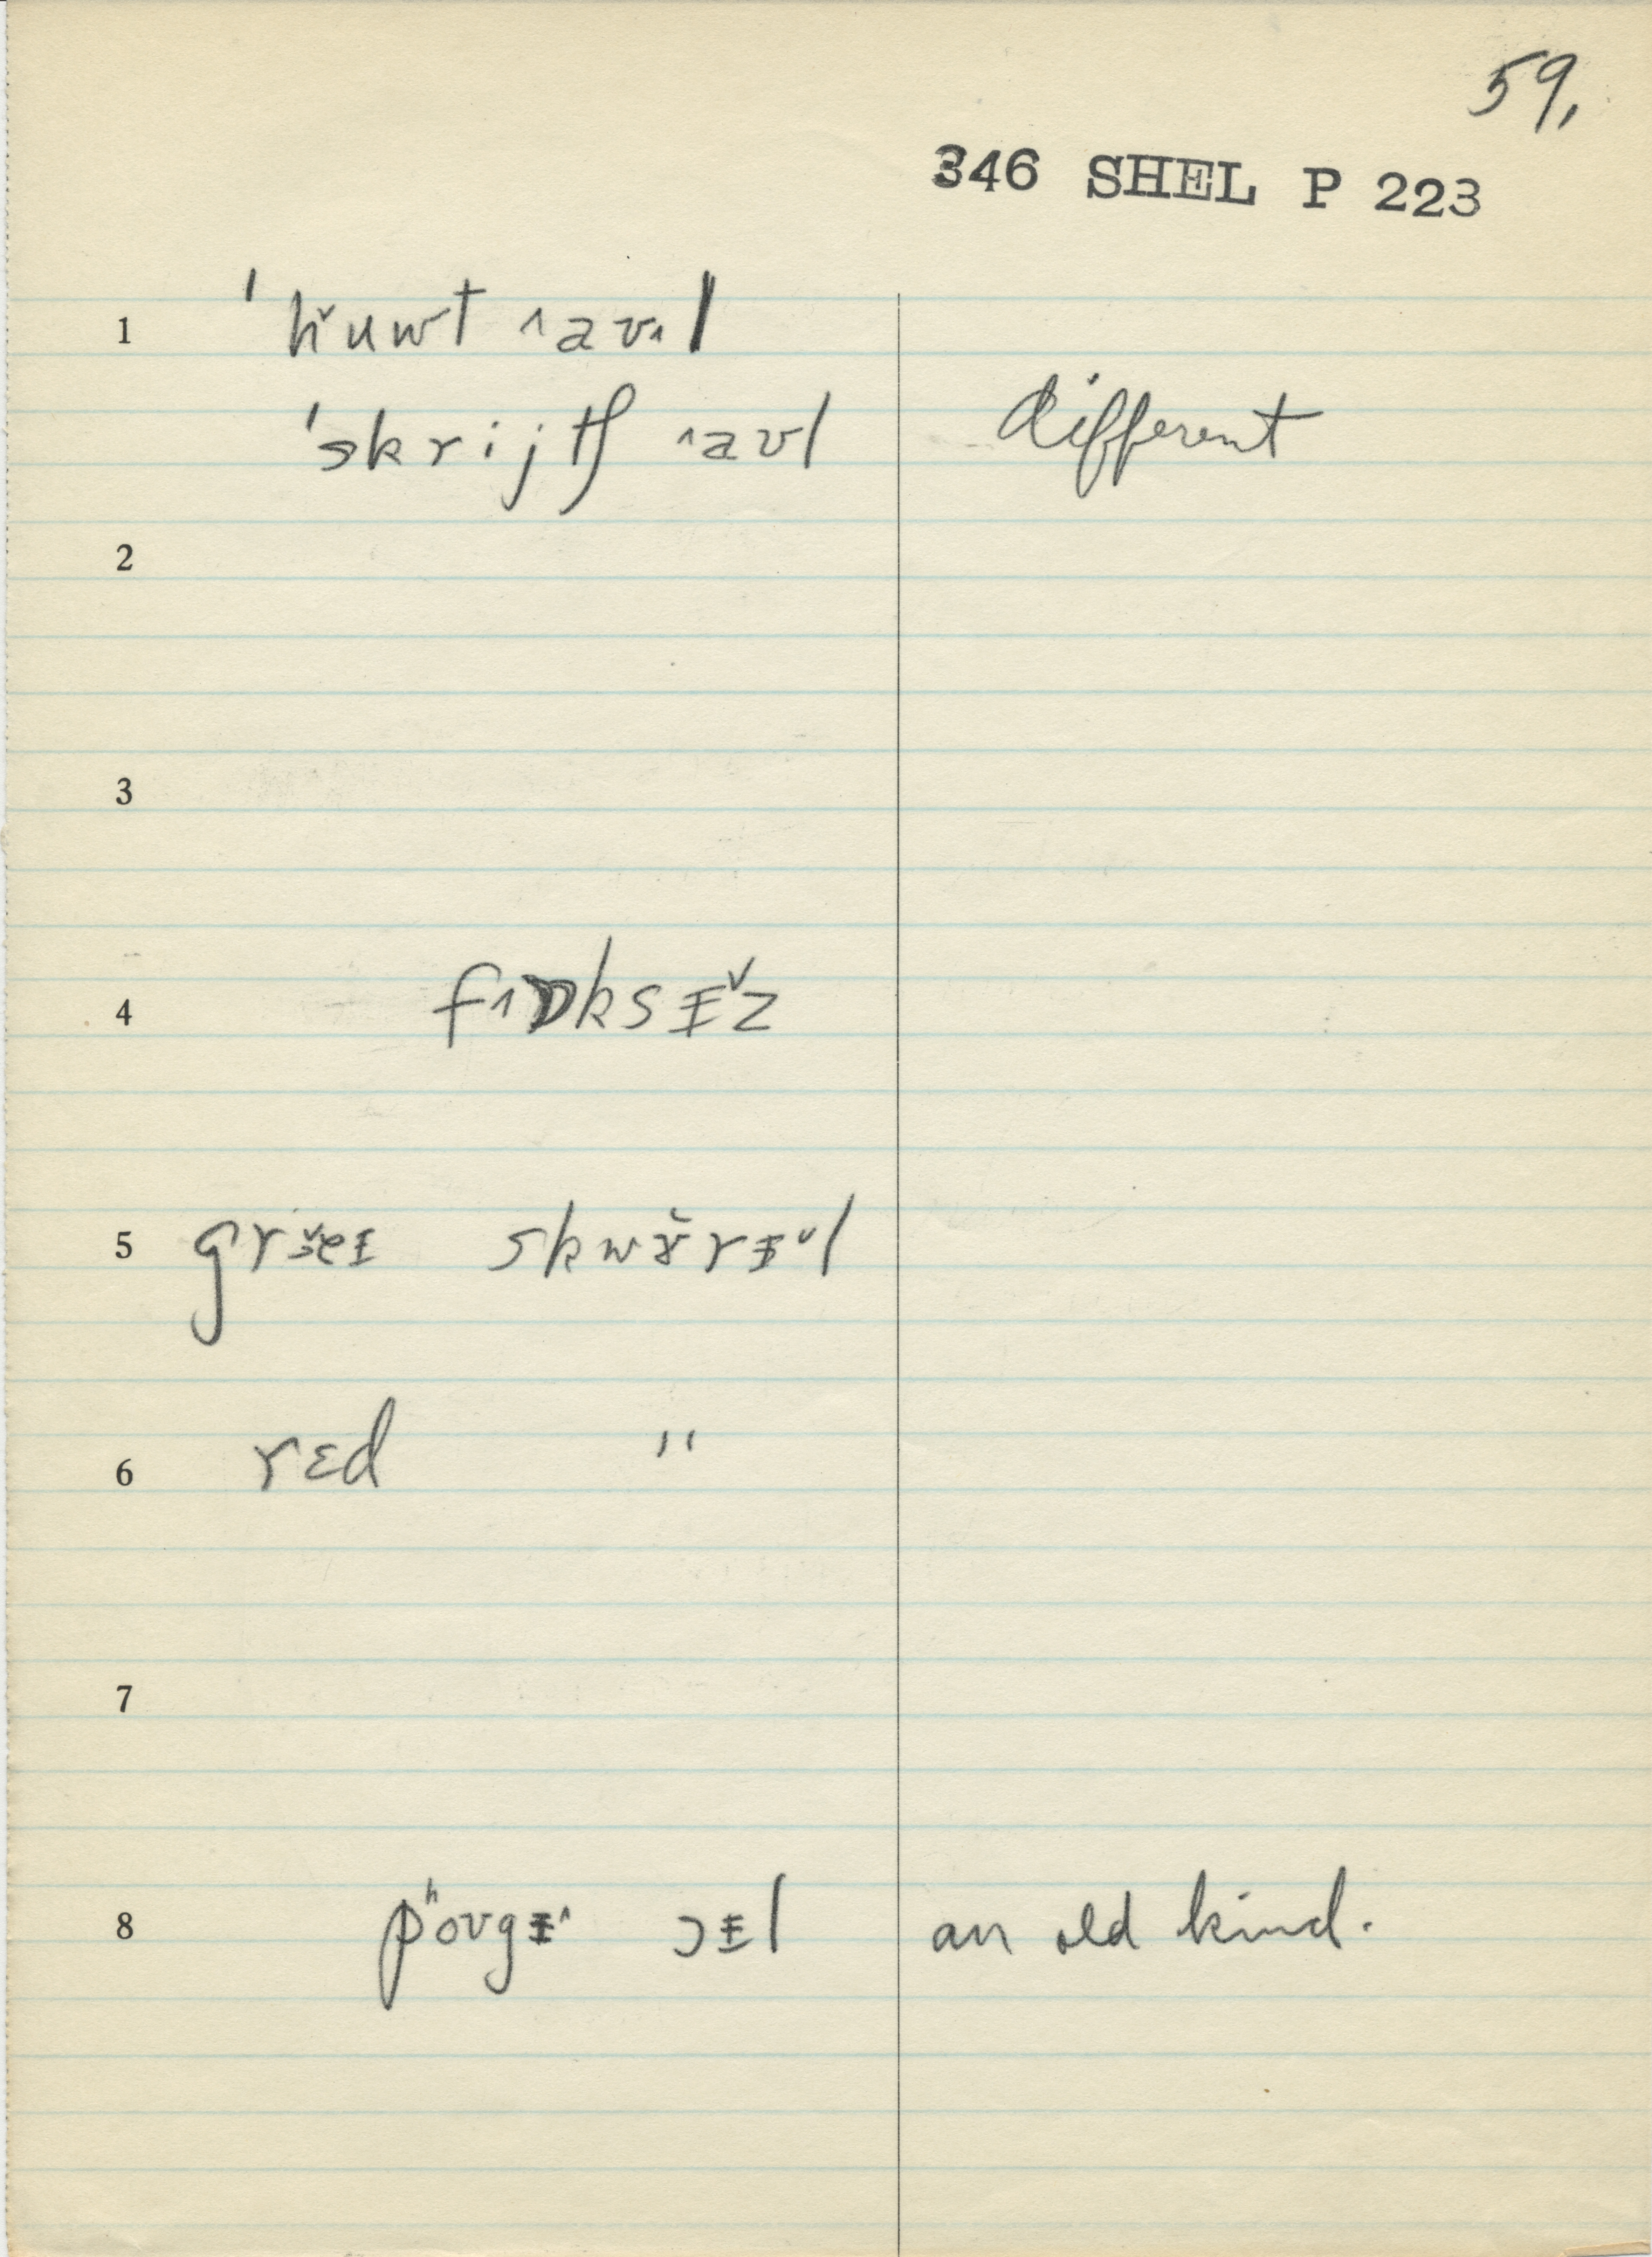 59,
346 SHEL P 223
1 ˈhˇuwt ˄aʊ˄l
ˈskrijtʃ ˄aʊl different
2
3
4 f˄ɒksᵻ˅z
5 grɜ˅eɪ skwɝ˅rᵻ˅l
6 rɛd "
7
8 pʰoʊgᵻ˄ ɔᵻl an old kind.